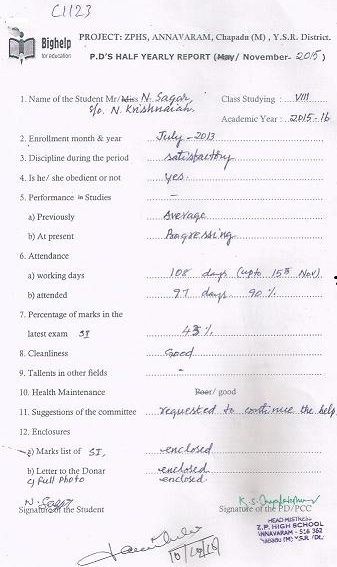 C1123
Bighelp
for education
PROJECT: ZPHS, ANNAVARAM, Chapadu (M) , Y.S.R. District.
P.D'S HALF YEARLY REPORT (May/ November- 2015)
1. Name of the Student Mr/Miss N. Sagar,
Class Studying : VIII
S/o. N. Krishnaiah.
Academic Year : 2015-16
2. Enrollment month & year July - 2013
3. Discipline during the period satisfactory
4. Is he/ she obedient or not yes.
5. Performance in Studies -
a) Previously Average
b) At present Progressing
6. Attendance
a) working days 108 days (upto 15th Nov)
b) attended 97 days. 90 %
7. Percentage of marks in the
latest exam SI 43 %
8. Cleanliness Good
9. Tallents in other fields -
10. Health Maintenance Poor/ good
11. Suggestions of the committee requested to continue the help
12. Enclosures
a) Marks list of SI, enclosed
b) Letter to the Donar enclosed
c) Full Photo enclosed.
N. Sagar
Signature of the Student
Signature of the PD/PCC
HEAD MISTRESS
Z.P. HIGH SCHOOL
ANNAVARAM - 516 362